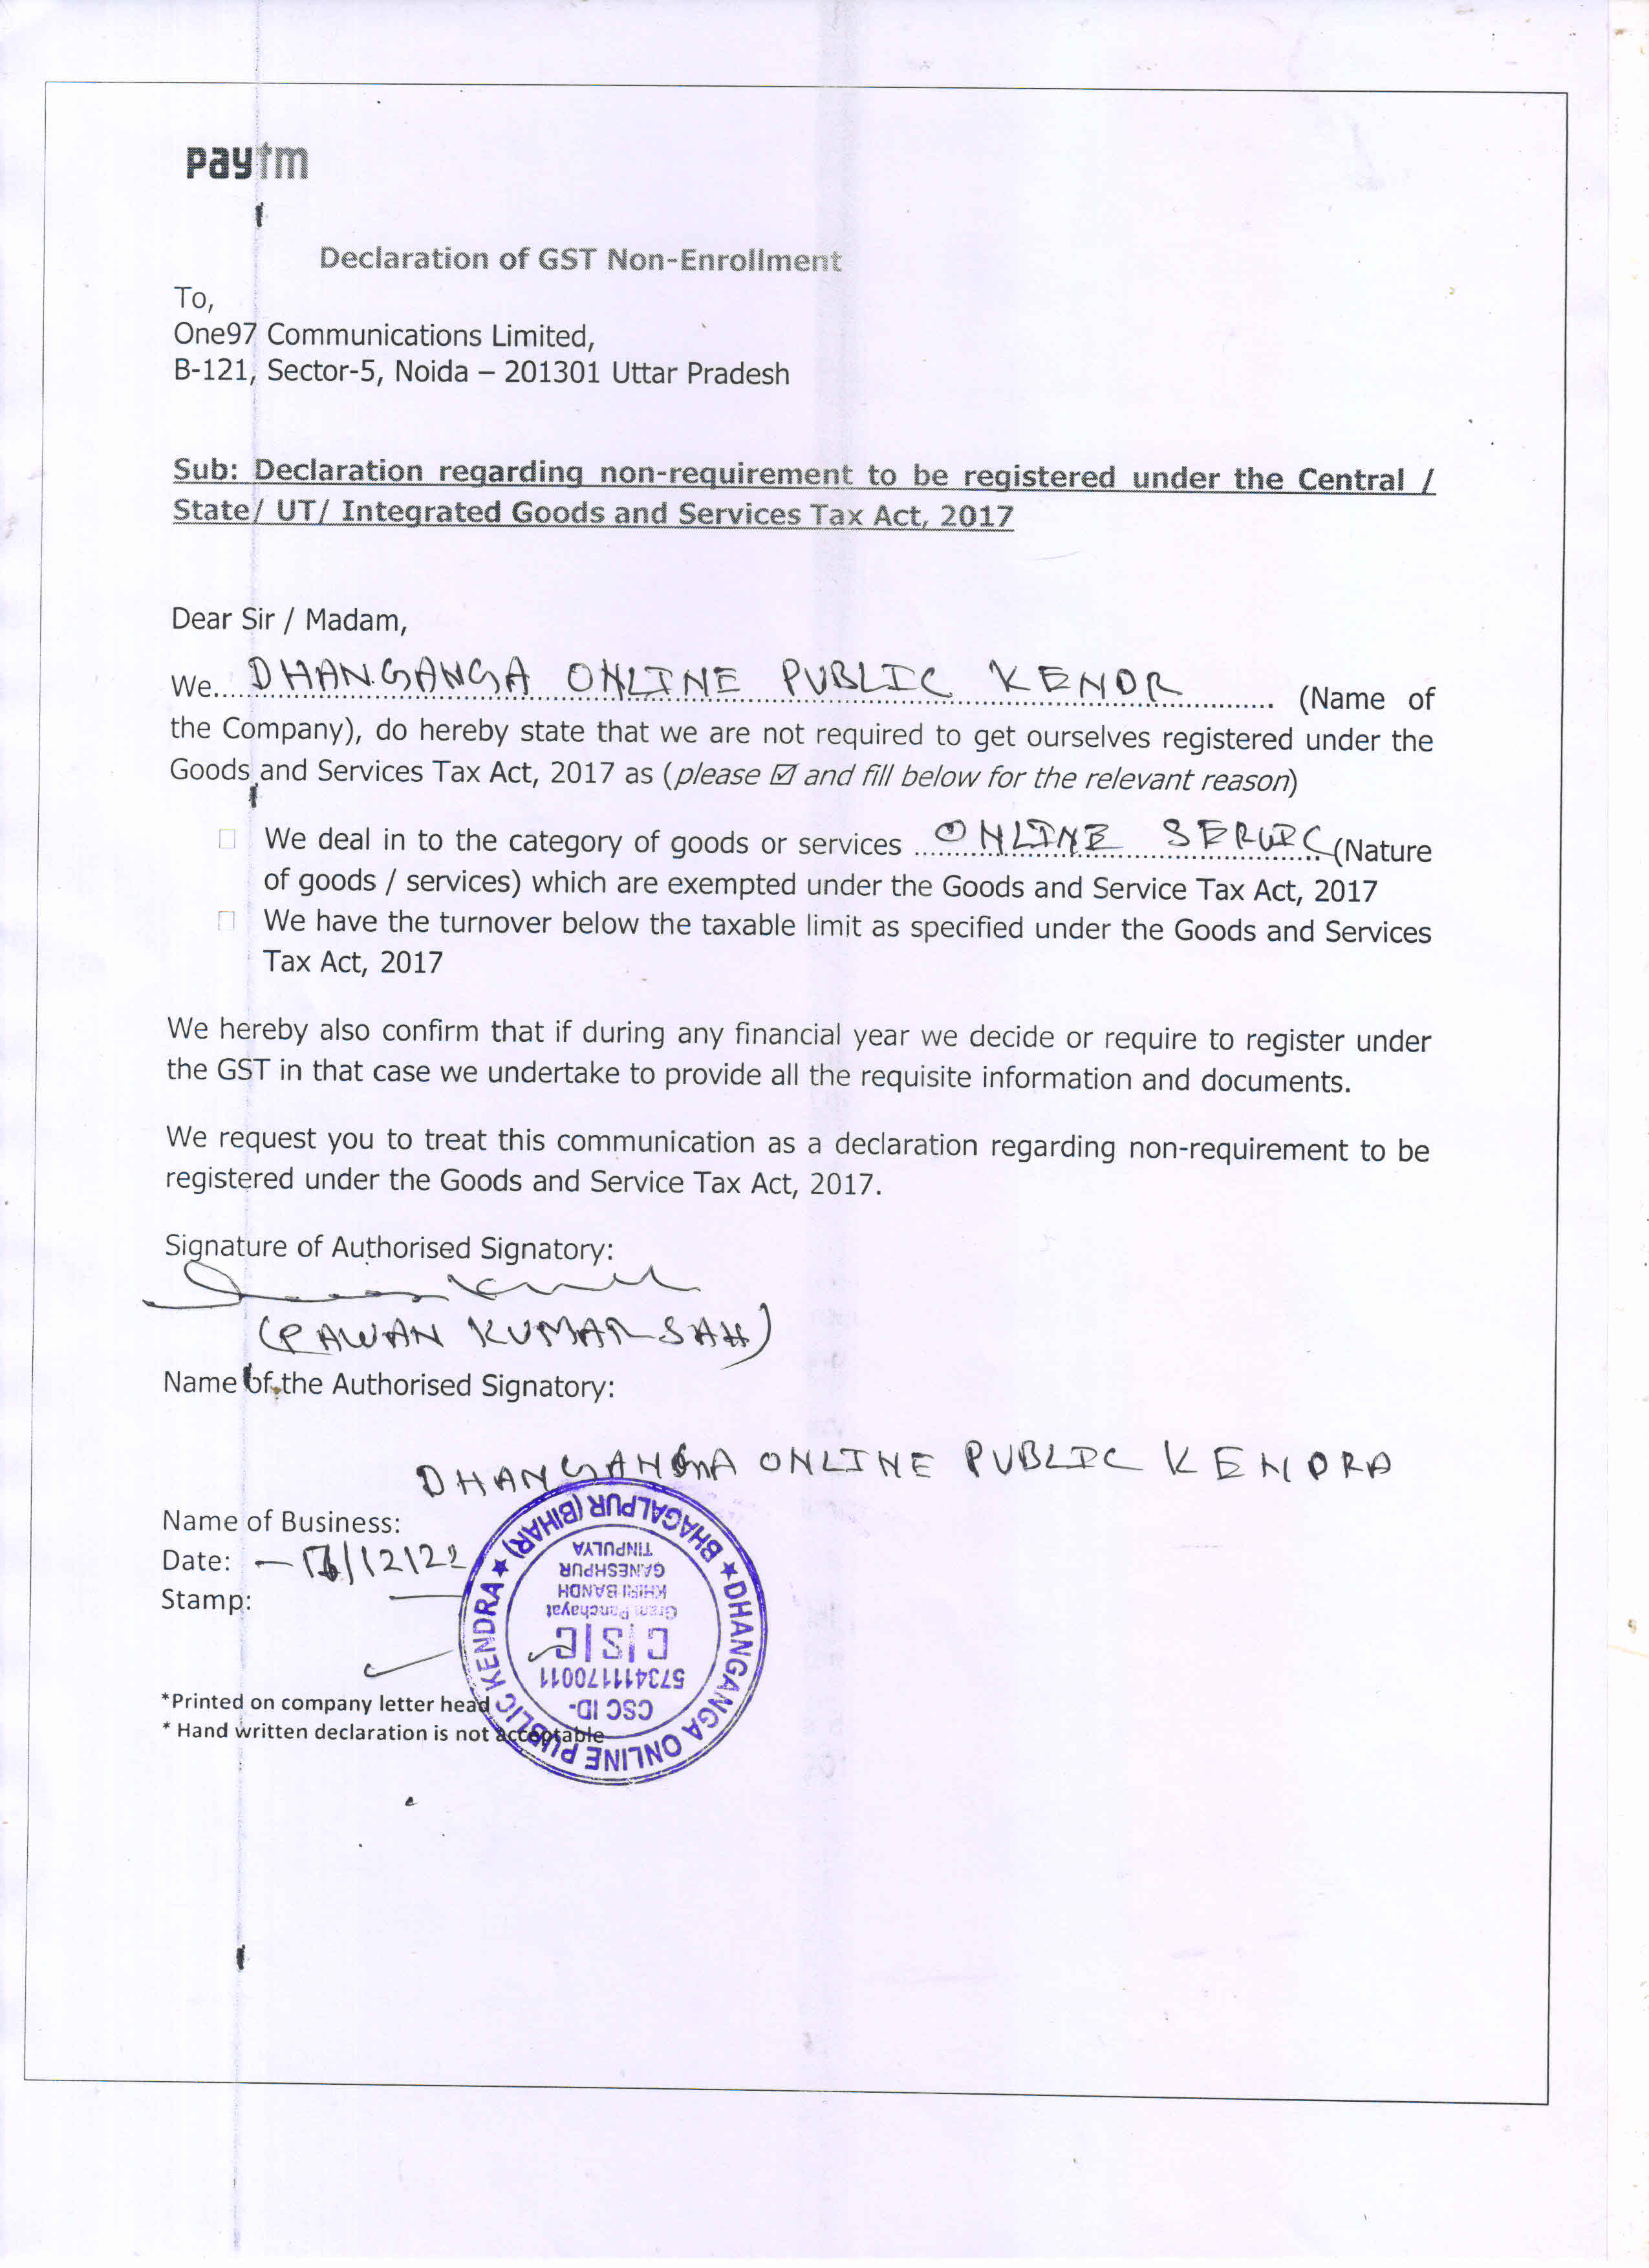 paytm
Declaration of GST Non-Enrollment
To,
One97 Communications Limited,
B-121, Sector-5, Noida – 201301 Uttar Pradesh
Sub: Declaration regarding non-requirement to be registered under the Central /
State/ UT/ Integrated Goods and Services Tax Act, 2017
Dear Sir / Madam,
We..... DHANGANGA ONLINE PUBLIC KENDR .......... (Name of
the Company), do hereby state that we are not required to get ourselves registered under the
Goods and Services Tax Act, 2017 as (please ☑ and fill below for the relevant reason)
☐ We deal in to the category of goods or services ..... ONLINE SERVIC (Nature
of goods / services) which are exempted under the Goods and Service Tax Act, 2017
☐ We have the turnover below the taxable limit as specified under the Goods and Services
Tax Act, 2017
We hereby also confirm that if during any financial year we decide or require to register under
the GST in that case we undertake to provide all the requisite information and documents.
We request you to treat this communication as a declaration regarding non-requirement to be
registered under the Goods and Service Tax Act, 2017.
Signature of Authorised Signatory:
(PAWAN KUMAR SAH)
Name of the Authorised Signatory:
DHANGANGA ONLINE PUBLIC KENDRA
Name of Business:
Date: – /12/22
Stamp:
★ DHANGANGA ONLINE PUBLIC KENDRA ★ BHAGALPUR (BIHAR)
CSC ID-
573411170011
C|S|C
Gram Panchayat
KHIRI BANDH
GANESHPUR
TINPULYA
*Printed on company letter head
* Hand written declaration is not acceptable